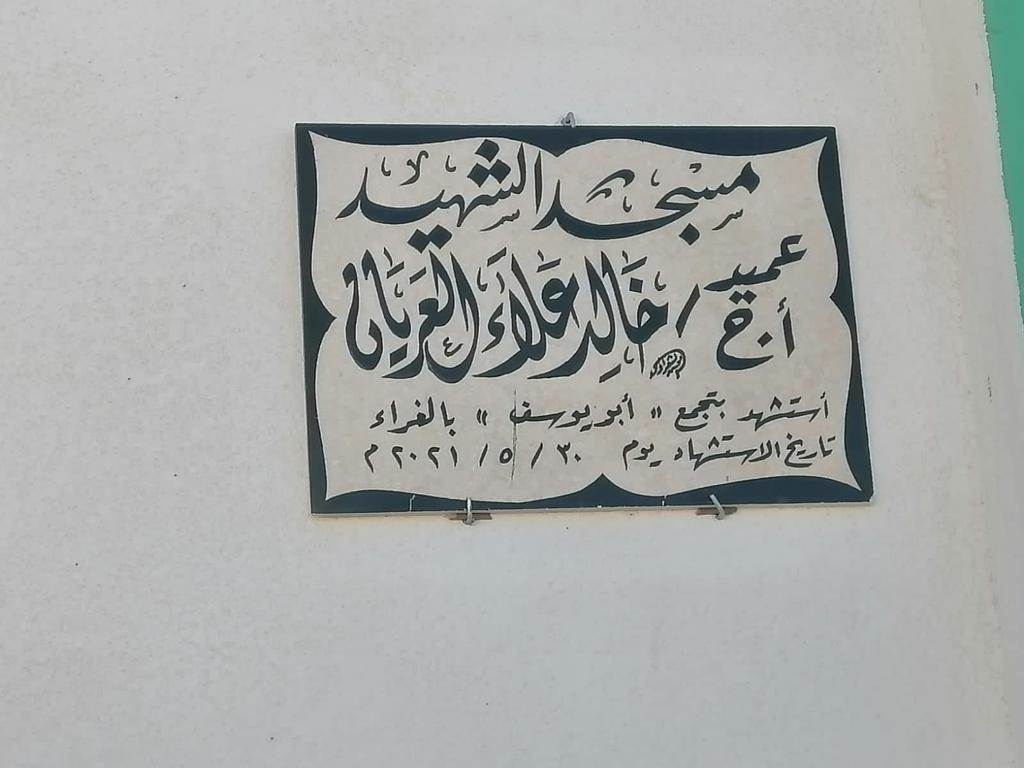 مسجد الشهيد
عميد أ.ح / خالد علاء العريان
أستشهد بتجمع " أبو يوسف " بالغراء
تاريخ الاستشهاد يوم ٣٠ / ٥ / ٢٠٢١ م